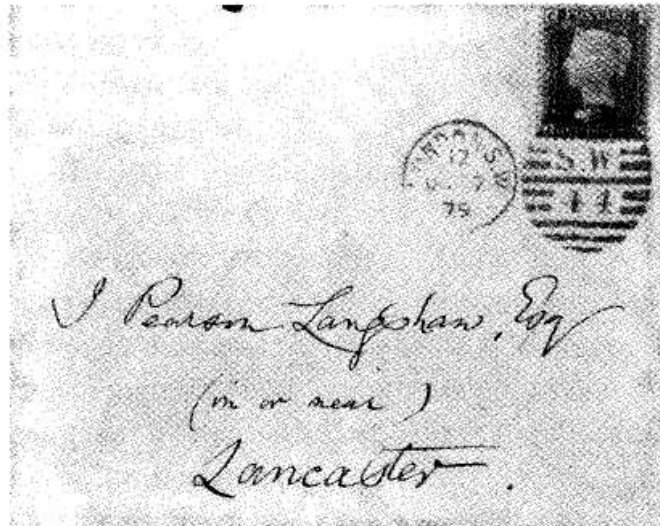 12
75
S.W
44
J Pearson Langshaw, Esq
(in or near)
Lancaster.